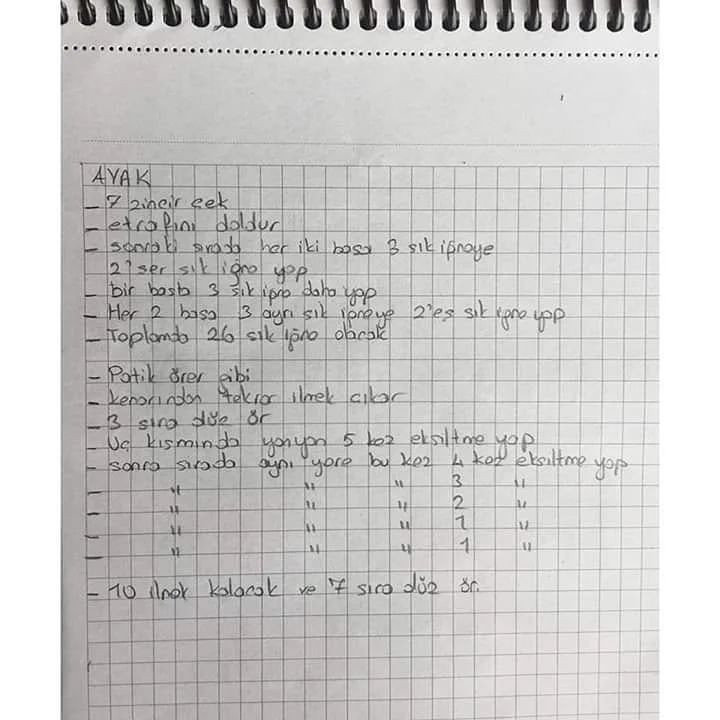 AYAK
- 7 zincir çek
- etrafını doldur
- sonraki sırada her iki başa 3 sık iğneye
2'şer sık iğne yap
- bir başta 3 sık iğne daha yap
- Her 2 başa 3 ayrı sık iğneye 2'eş sık iğne yap
- Toplamda 26 sık iğne olacak
- Patik örer gibi
- kenarından tekrar ilmek çıkar
- 3 sıra düz ör
- Uç kısmında yanyan 5 kez eksiltme yap
- sonra sırada aynı yere bu kez 4 kez eksiltme yap
- " " " 3 "
- " " " 2 "
- " " " 1 "
- " " " 1 "
- 10 ilmek kalacak ve 7 sıra düz ör.